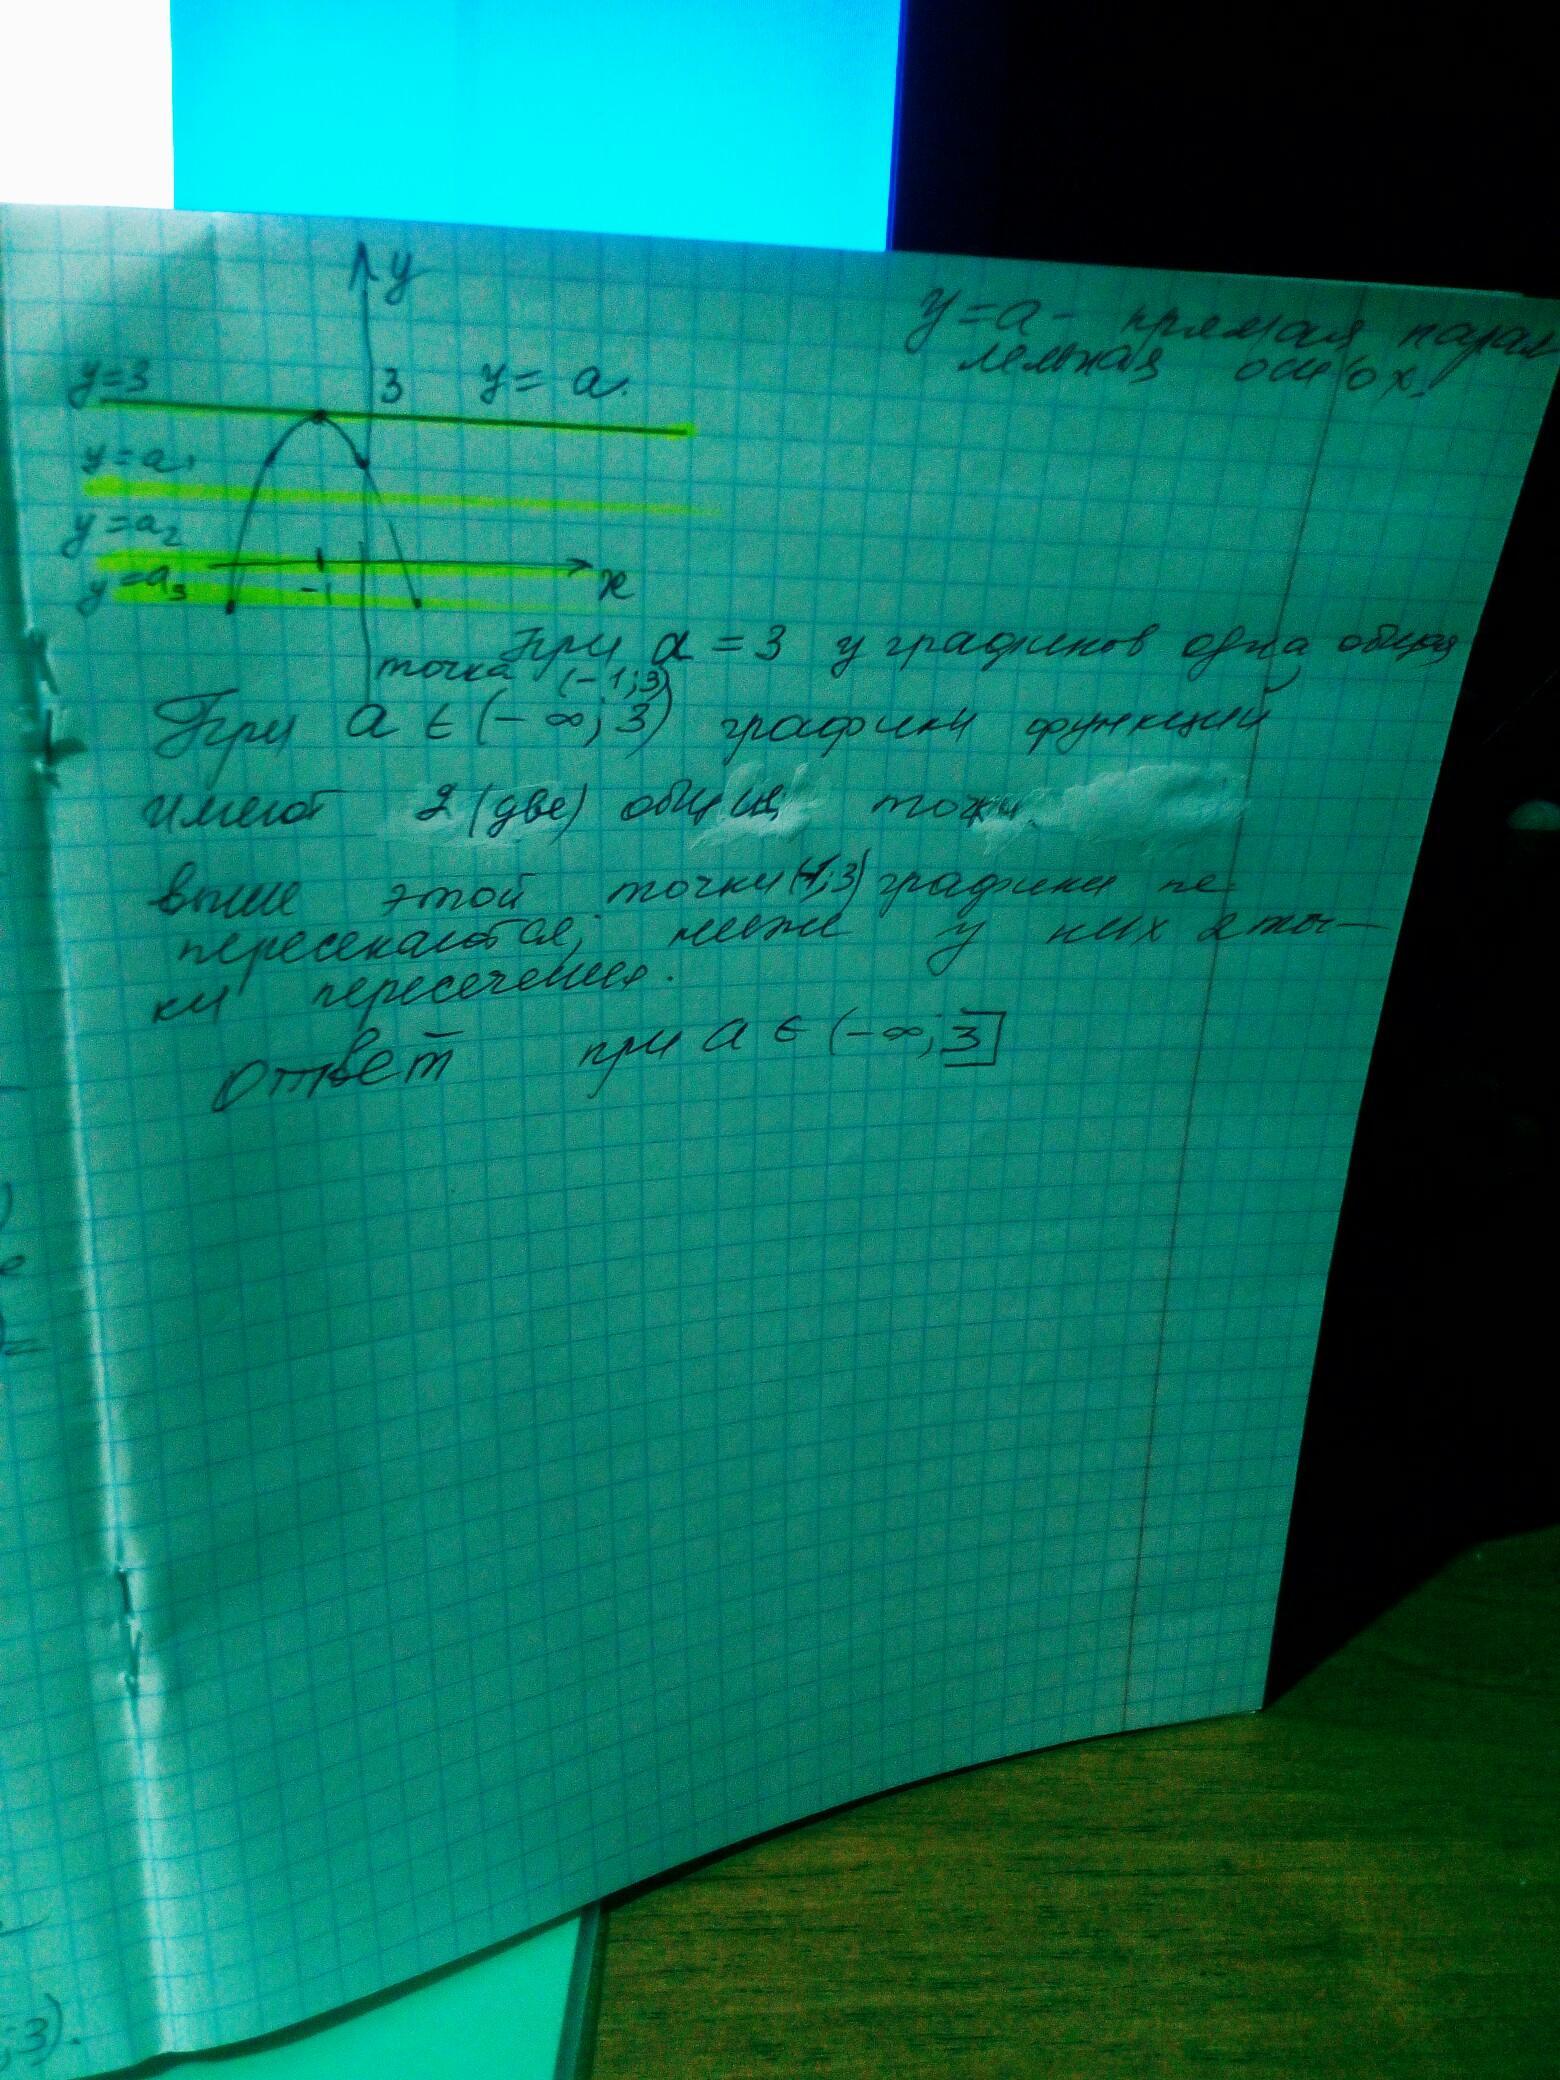 y
y = a - прямая парал
лельная оси ox.
y=3
3 y = a.
y=a1
y=a2
y=a3
-1
x
При a = 3 у графиков одна общая
точка (-1;3)
При a ∈ (-∞; 3) графики функций
имеют 2 (две) общие точки.
выше этой точки (-1;3) графики не
пересекаются, ниже у них 2 точ-
ки пересечения.
Ответ при a ∈ (-∞; 3]
;3).